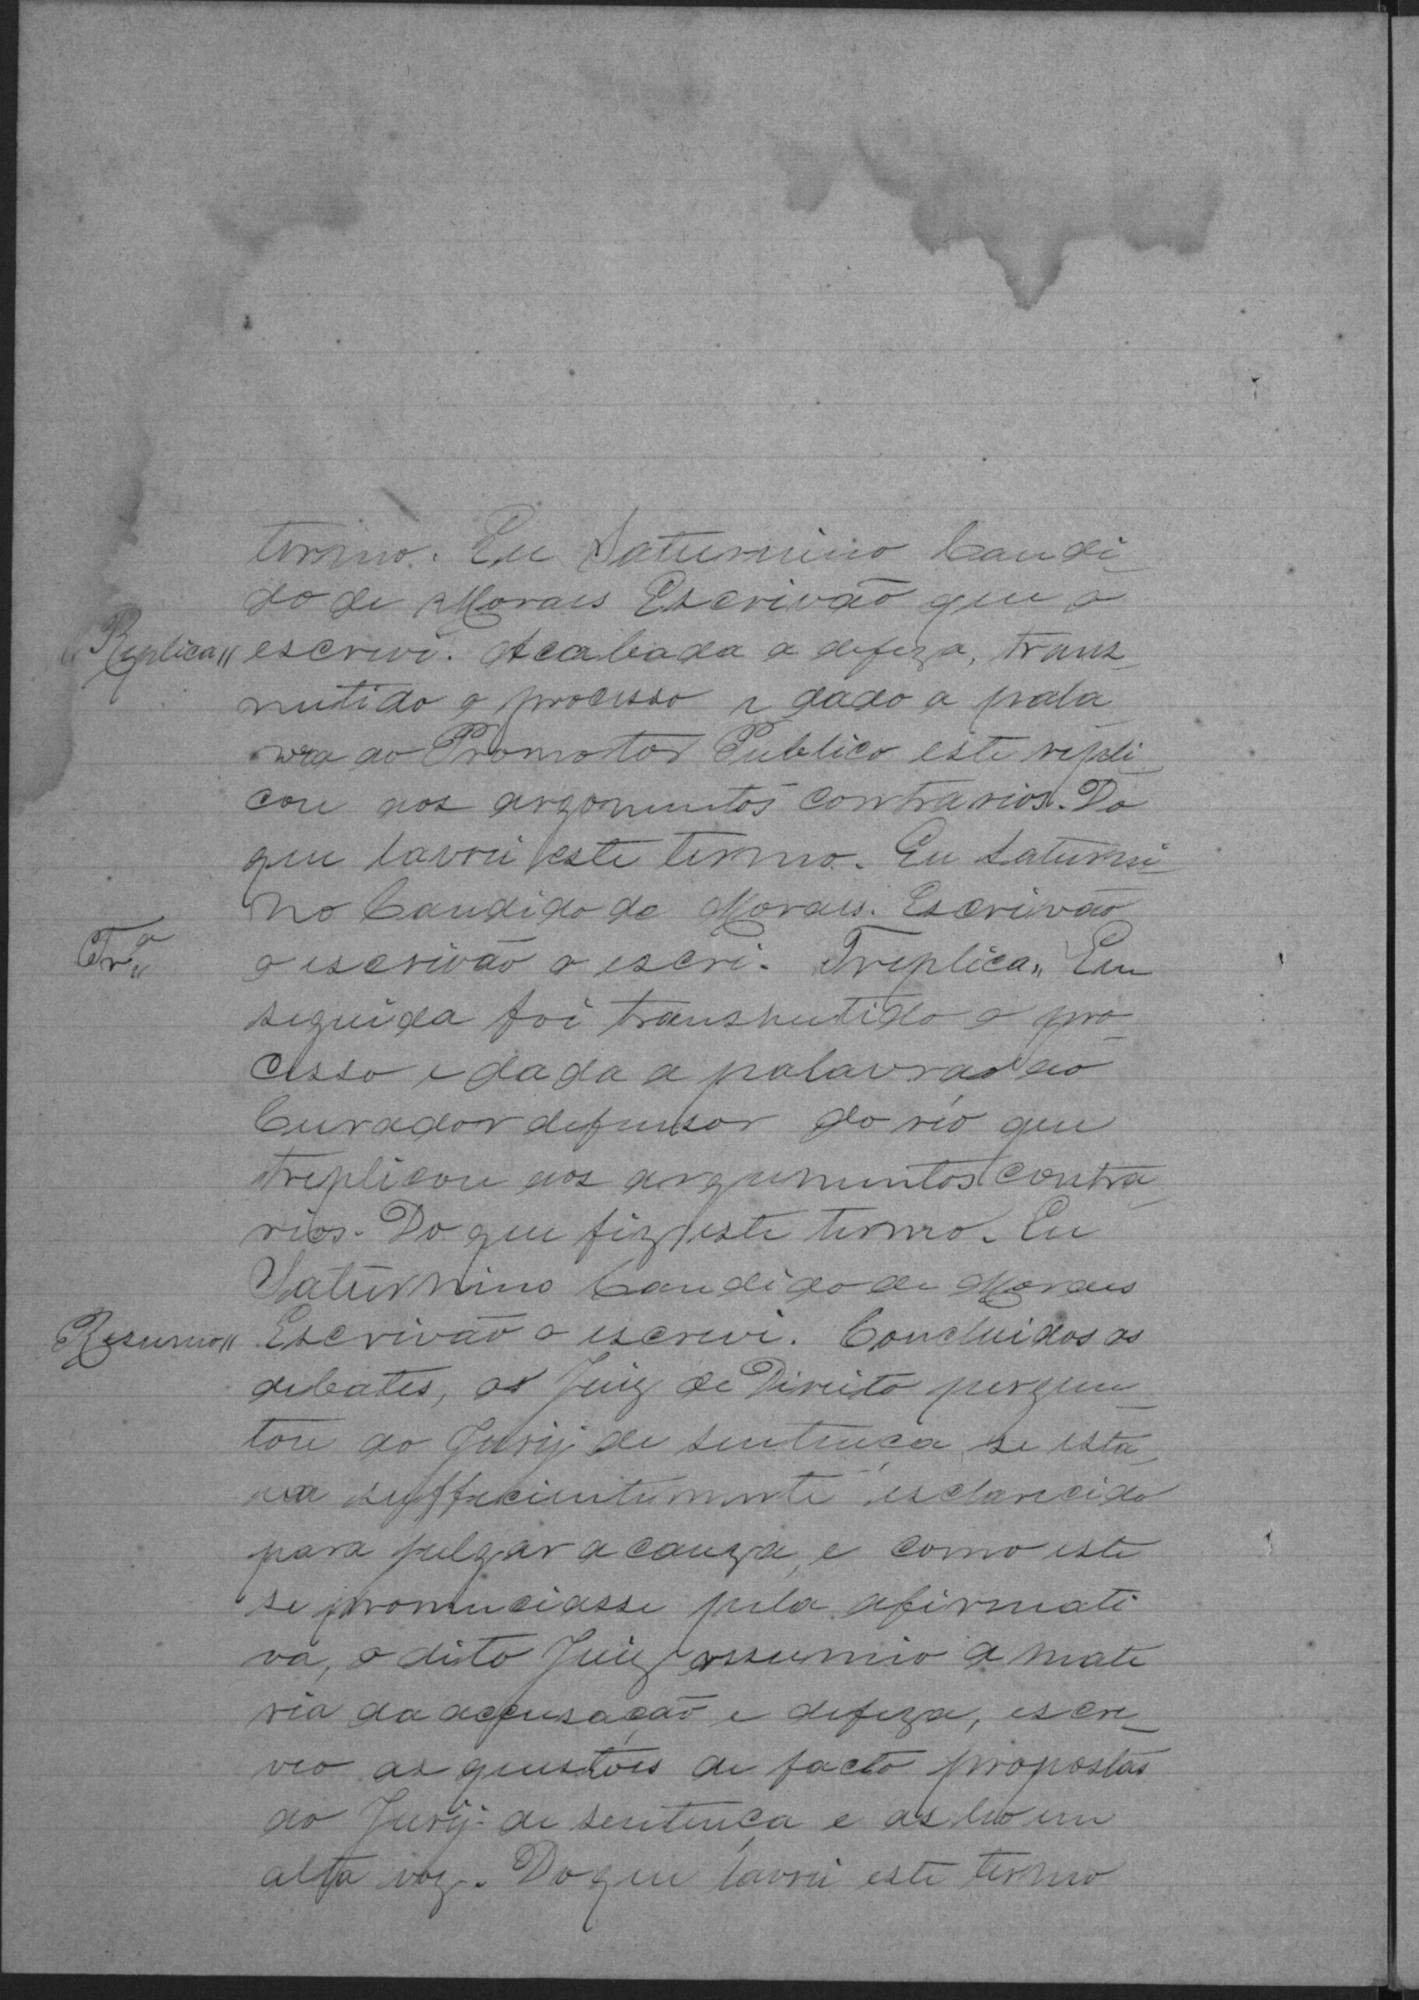 termo. Eu Saturnino Candi-
do de Morais Escrivão que o
Replica" escrevi. Acabada a defeza, trans-
mitido o processo e dado a pala-
vra ao Promotor Publico este repli-
cou aos argomentos contrarios. Do
que lavrei este termo. Eu Saturni-
no Candido de Morais. Escrivão
Trª" o escrivão o escri. Treplica" Em
seguida foi transmetido o pro-
cesso e dada a palavra ao
Curador defensor do reo que
treplicou aos argumentos contra-
rios. Do que fiz este termo. Eu
Saturnino Candido de Morais
Resumo" Escrivão o escrevi. Concluidos os
debates, o Juiz de Direito pergun-
tou ao Jury de sentença se esta-
va sufficientemente esclarecido
para julgar a cauza, e como este
se pronunciasse pela afirmati
va, o dito Juiz ressumio a mate
ria da accusação e defeza, escre-
veo as questões de facto propostas
ao Jury de sentença e as leo em
alta voz. Do que lavrei este termo